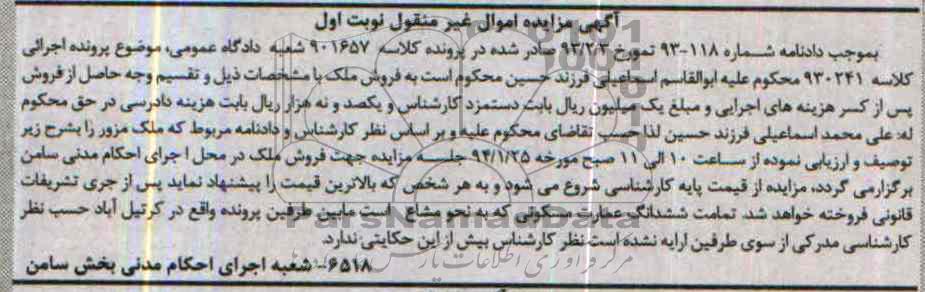 آگهی مزایده اموال غیر منقول نوبت اول
بموجب دادنامه شماره ۱۱۸-۹۳ تمورخ ۹۳/۲/۳ صادر شده در پرونده کلاسه ۹۰۱۶۵۷ شعبه دادگاه عمومی، موضوع پرونده اجرائی
کلاسه ۹۳۰۲۴۱ محکوم علیه ابوالقاسم اسماعیلی فرزند حسین محکوم است به فروش ملک با مشخصات ذیل و تقسیم وجه حاصل از فروش
پس از کسر هزینه های اجرایی و مبلغ یک میلیون ریال بابت دستمزد کارشناس و یکصد و نه هزار ریال بابت هزینه دادرسی در حق محکوم
له: علی محمد اسماعیلی فرزند حسین لذا حسب تقاضای محکوم علیه و بر اساس نظر کارشناس و دادنامه مربوط که ملک مزور را بشرح زیر
توصیف و ارزیابی نموده از ساعت ۱۰ الی ۱۱ صبح مورخه ۹۴/۱/۲۵ جلسه مزایده جهت فروش ملک در محل اجرای احکام مدنی سامن
برگزار می گردد، مزایده از قیمت پایه کارشناسی شروع می شود و به هر شخص که بالاترین قیمت را پیشنهاد نماید پس از جری تشریفات
قانونی فروخته خواهد شد. تمامت ششدانگ عمارت مسکونی که به نحو مشاع است مابین طرفین پرونده واقع در کرتیل آباد حسب نظر
کارشناسی مدرکی از سوی طرفین ارایه نشده است نظر کارشناس بیش از این حکایتی ندارد.
۶۵۱۸- شعبه اجرای احکام مدنی بخش سامن
ParsNamadData
مرکز فرآوری اطلاعات پارس